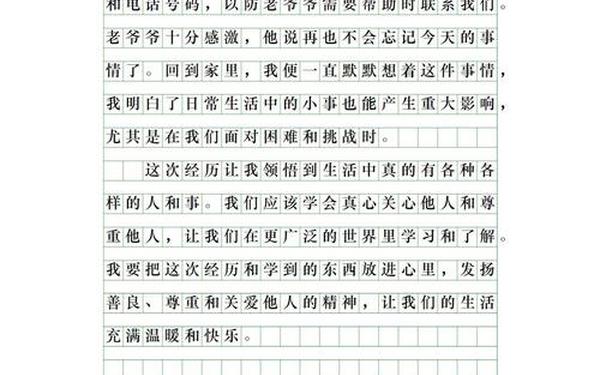 和电话号码，以防老爷爷需要帮助时联系我们。
老爷爷十分感激，他说再也不会忘记今天的事
情了。回到家里，我便一直默默想着这件事情，
我明白了日常生活中的小事也能产生重大影响，
尤其是在我们面对困难和挑战时。
这次经历让我领悟到生活中真的有各种各
样的人和事。我们应该学会真心关心他人和尊
重他人，让我们在更广泛的世界里学习和了解。
我要把这次经历和学到的东西放进心里，发扬
善良、尊重和关爱他人的精神，让我们的生活
充满温暖和快乐。